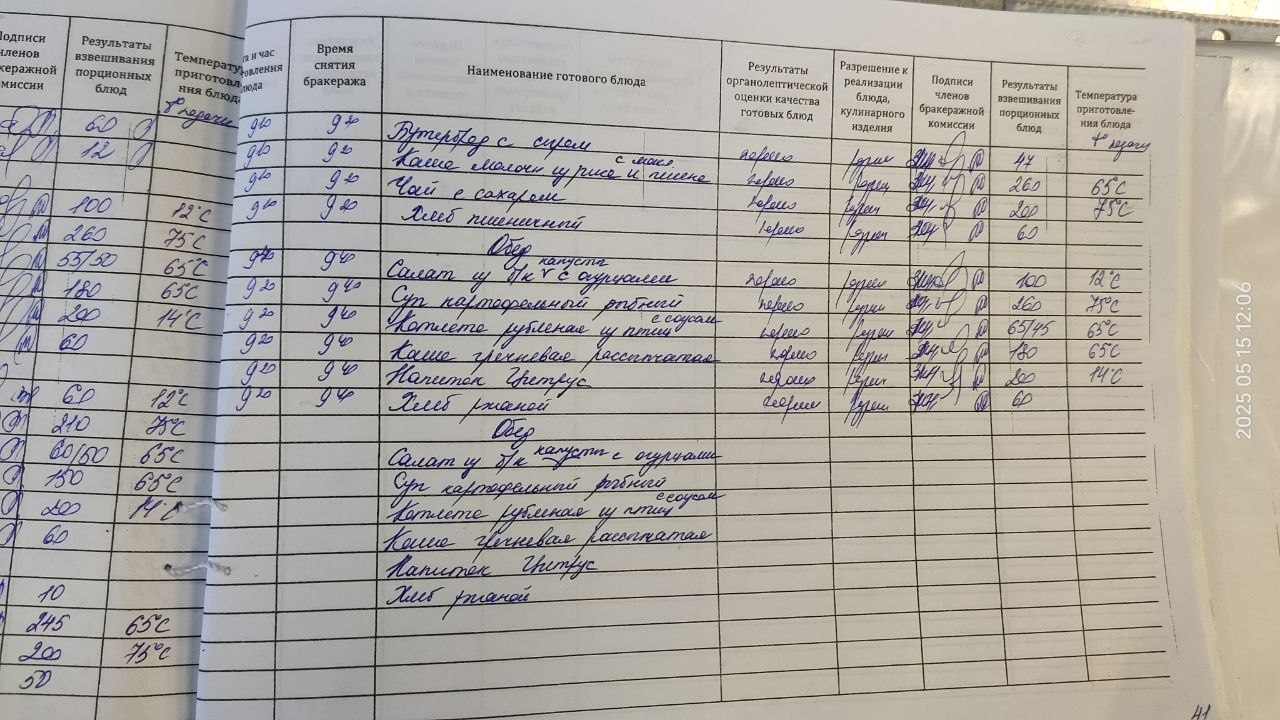 Подписи членов бракеражной комиссии
Результаты взвешивания порционных блюд
Температура приготовления блюда
t подачи
60
12
100 12°C
260 75°C
55/50 65°C
180 65°C
200 14°C
60
60 12°C
210 75°C
60/50 65°C
150 65°C
200 14°C
60
10
245 65°C
200 75°C
50
та и час
товления
блюда
Время
снятия
бракеража
Наименование готового блюда
Результаты
органолептической
оценки качества
готовых блюд
Разрешение к
реализации
блюда,
кулинарного
изделия
Подписи
членов
бракеражной
комиссии
Результаты
взвешивания
порционных
блюд
Температура
приготовле-
ния блюда
t подачи
9 20 Бутерброд с сыром хорошо 47
9 20 Каша молочн из риса и пшена с масл хорошо 260 65°C
9 20 Чай с сахаром хорошо 200 75°C
9 20 Хлеб пшеничный хорошо 60
Обед
9 40 Салат из б/к капусты с огурцами хорошо 100 12°C
9 20 9 40 Суп картофельный рыбный хорошо 260 75°C
9 20 9 40 Котлета рубленая из птиц с соусом хорошо 65/45 65°C
9 20 9 40 Каша гречневая рассыпчатая хорошо 180 65°C
9 20 9 40 Напиток Цитрус хорошо 200 14°C
9 20 9 40 Хлеб ржаной хорошо 60
Обед
Салат из б/к капусты с огурцами
Суп картофельный рыбный
Котлета рубленая из птиц с соусом
Каша гречневая рассыпчатая
Напиток Цитрус
Хлеб ржаной
41
2025 05 15 12:06